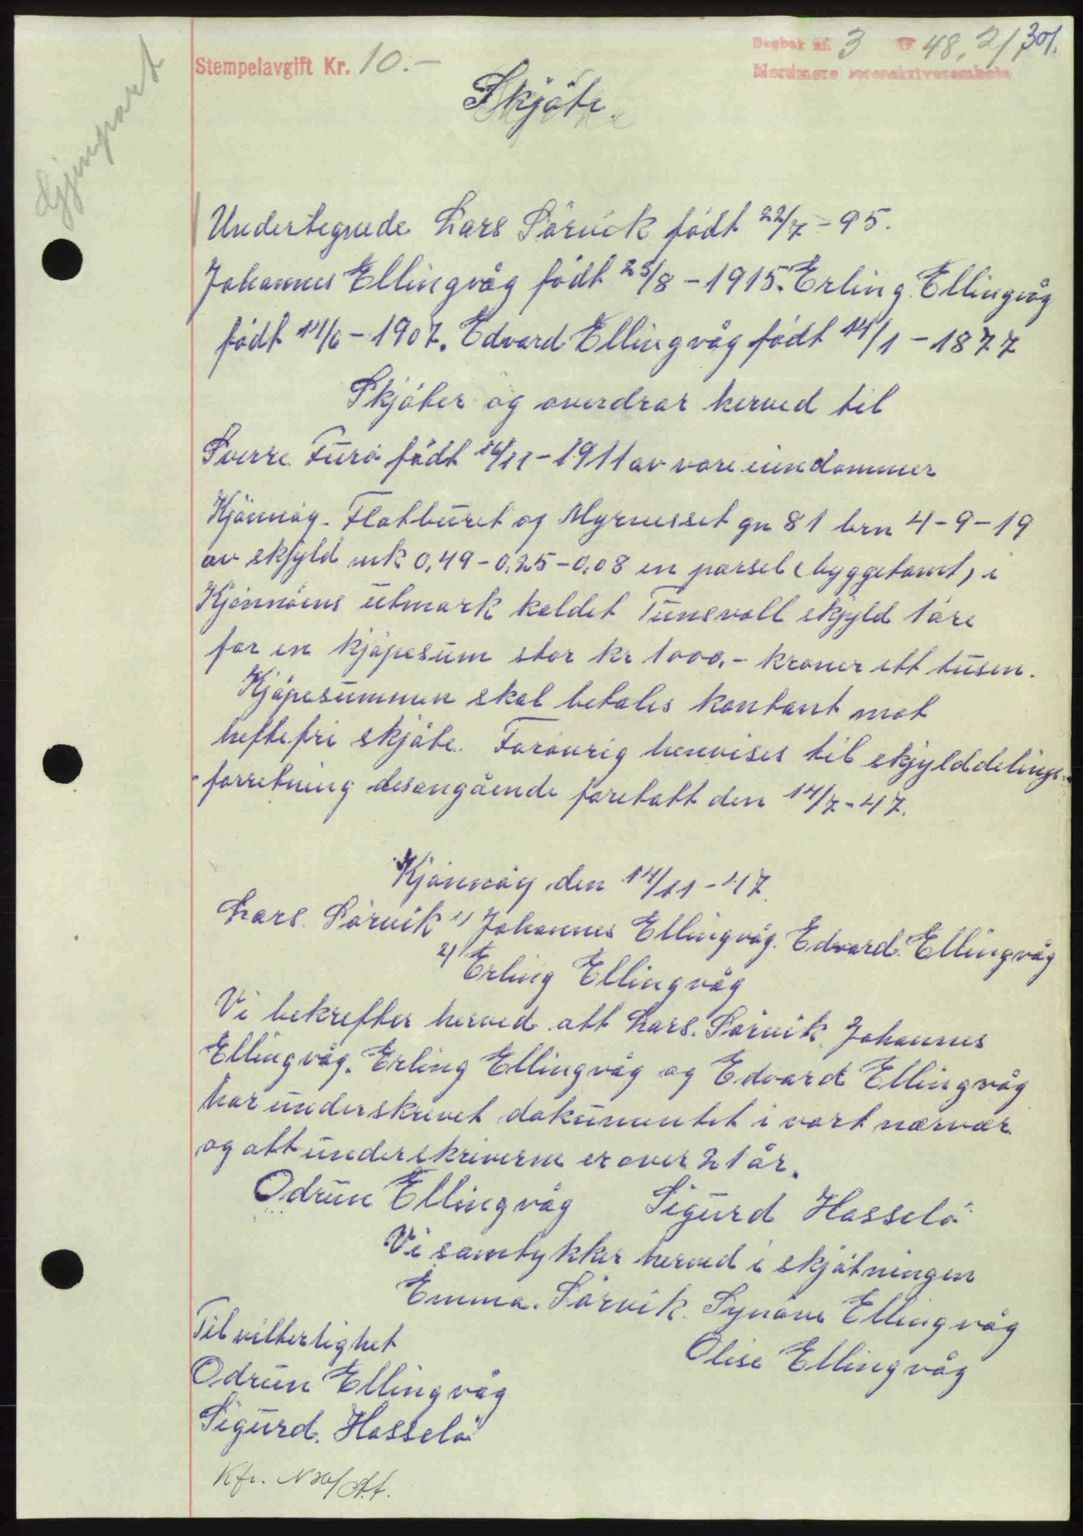 Gjenpart
Stempelavgift Kr. 10.-
Dagbok nr. 3 19 48, 2/1
Nordmøre sorenskriverembete
301.
Skjöte.
Undertegnede Lars Sörvik födt 22/7 - 95.
Johannes Ellingvåg födt 25/8 - 1915. Erling Ellingvåg
födt 14/6 - 1907. Edvard Ellingvåg födt 14/1 - 1877
Skjöter og overdrar herved til
Sverre Furö födt 14/11 - 1911 av vore eiendommer
Kjönnöy - Flatburet og Myrnesset gn 81 brn 4 - 9 - 19
av skjyld mk 0,49 - 0,25 - 0,08 en parsel (byggetomt) i
Kjönnöens utmark kaldet Tunsvoll skjyld 1 öre
for en kjöpesum stor kr 1000,- kroner ett tusen.
Kjöpesummen skal betales kontant mot
heftefri skjöte. Forövrig henvises til skjylddelings-
forretning desangående foretatt den 14/7 - 47.
Kjönnöy den 14/11 - 47.
Lars Sörvik 1) Johannes Ellingvåg. Edvard Ellingvåg
2) Erling Ellingvåg
Vi bekrefter herved att Lars Sörvik Johannes
Ellingvåg. Erling Ellingvåg og Edvard Ellingvåg
har underskrevet dokumentet i vort nærvær
og att underskriverne er over 21 år.
Odrun Ellingvåg Sigurd Hasselö
Vi samtykker herved i skjötningen
Emma Sörvik. Synöve Ellingvåg
Olise Ellingvåg
Til vitterlighet
Odrun Ellingvåg
Sigurd Hasselö
Kfr.